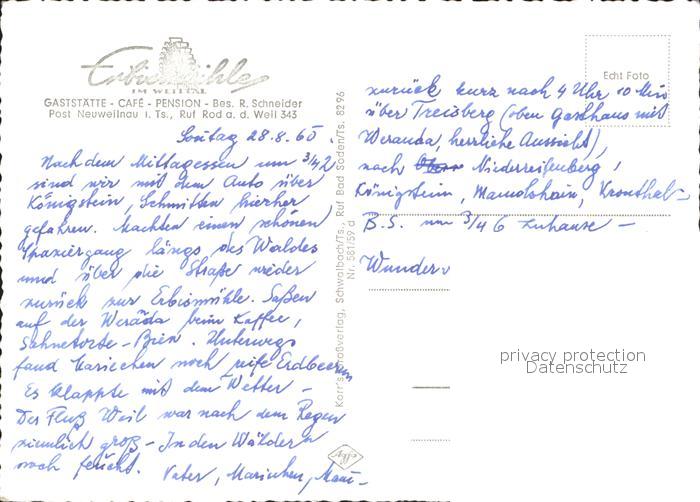 Erbismühle
IM WEILTAL
GASTSTÄTTE - CAFÉ - PENSION - Bes. R. Schneider
Post Neuweilnau i. Ts., Ruf Rod a. d. Weil 343
Sontag 28.8.60.
Nach dem Mittagessen um 3/42
sind wir mit dem Auto über
Königstein, Schmitten hierher
gefahren. Machten einen schönen
Spaziergang längs des Waldes
und über die Straße wieder
zurück zur Erbismühle. Saßen
auf der Weráda beim Kaffee,
Sahnetorte - Bien. Unterwegs
fand Mariechen noch reife Erdbeeren
Es klappte mit dem Wetter -
Der Fluß Weil war nach dem Regen
ziemlich groß - In den Wäldern
noch feucht. Vater, Mariechen,
Korr's Großverlag, Schwalbach/Ts., Ruf Bad Soden/Ts. 8296
Nr. 581/59 d
Agfa
Echt Foto
zurück kurz nach 4 Uhr 10 Min
über Treisberg (oben Gasthaus mit
Weranda, herrliche Aussicht),
nach Niederreifenberg,
Königstein, Mamolshain, Kronthal-
B.S. um 3/46 zuhause -
Wunder
privacy protection
Datenschutz